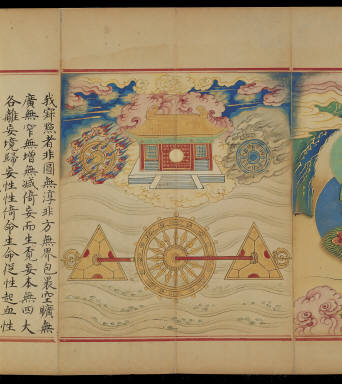 我錫照者非圓無淳非方無界包最空曠無
廣無窄無增無減倚妄而生覓妄本無四大
各離妄境歸妄性性倚命生命從性起血性